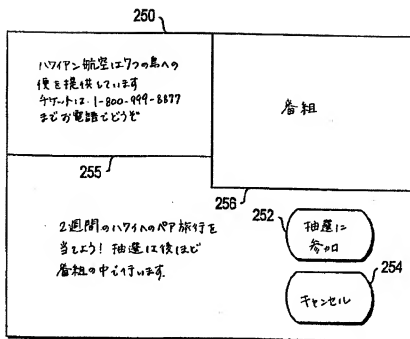 250
ハワイアン航空は7つの島への
便を提供しています
チケットは、1-800-999-8877
までお電話でどうぞ
番組
255
256
2週間のハワイへのペア旅行を
当てよう! 抽選は後ほど
番組の中で行います.
252
抽選に
参加
254
キャンセル